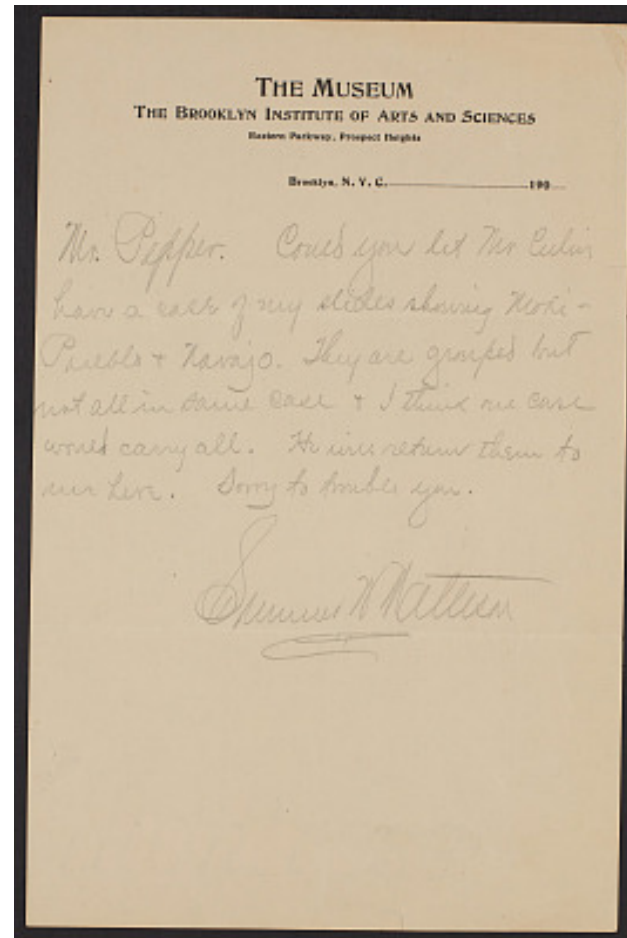 THE MUSEUM
THE BROOKLYN INSTITUTE OF ARTS AND SCIENCES
Eastern Parkway, Prospect Heights
Brooklyn, N. Y. C. 190
Mr. Pepper. Could you let Mr Culin
have a case of my slides showing Moki-
Pueblo + Navajo. They are grouped but
not all in same case + I think one case
would carry all. He will return them to
me here. Sorry to trouble you.
Sumner W Matteson